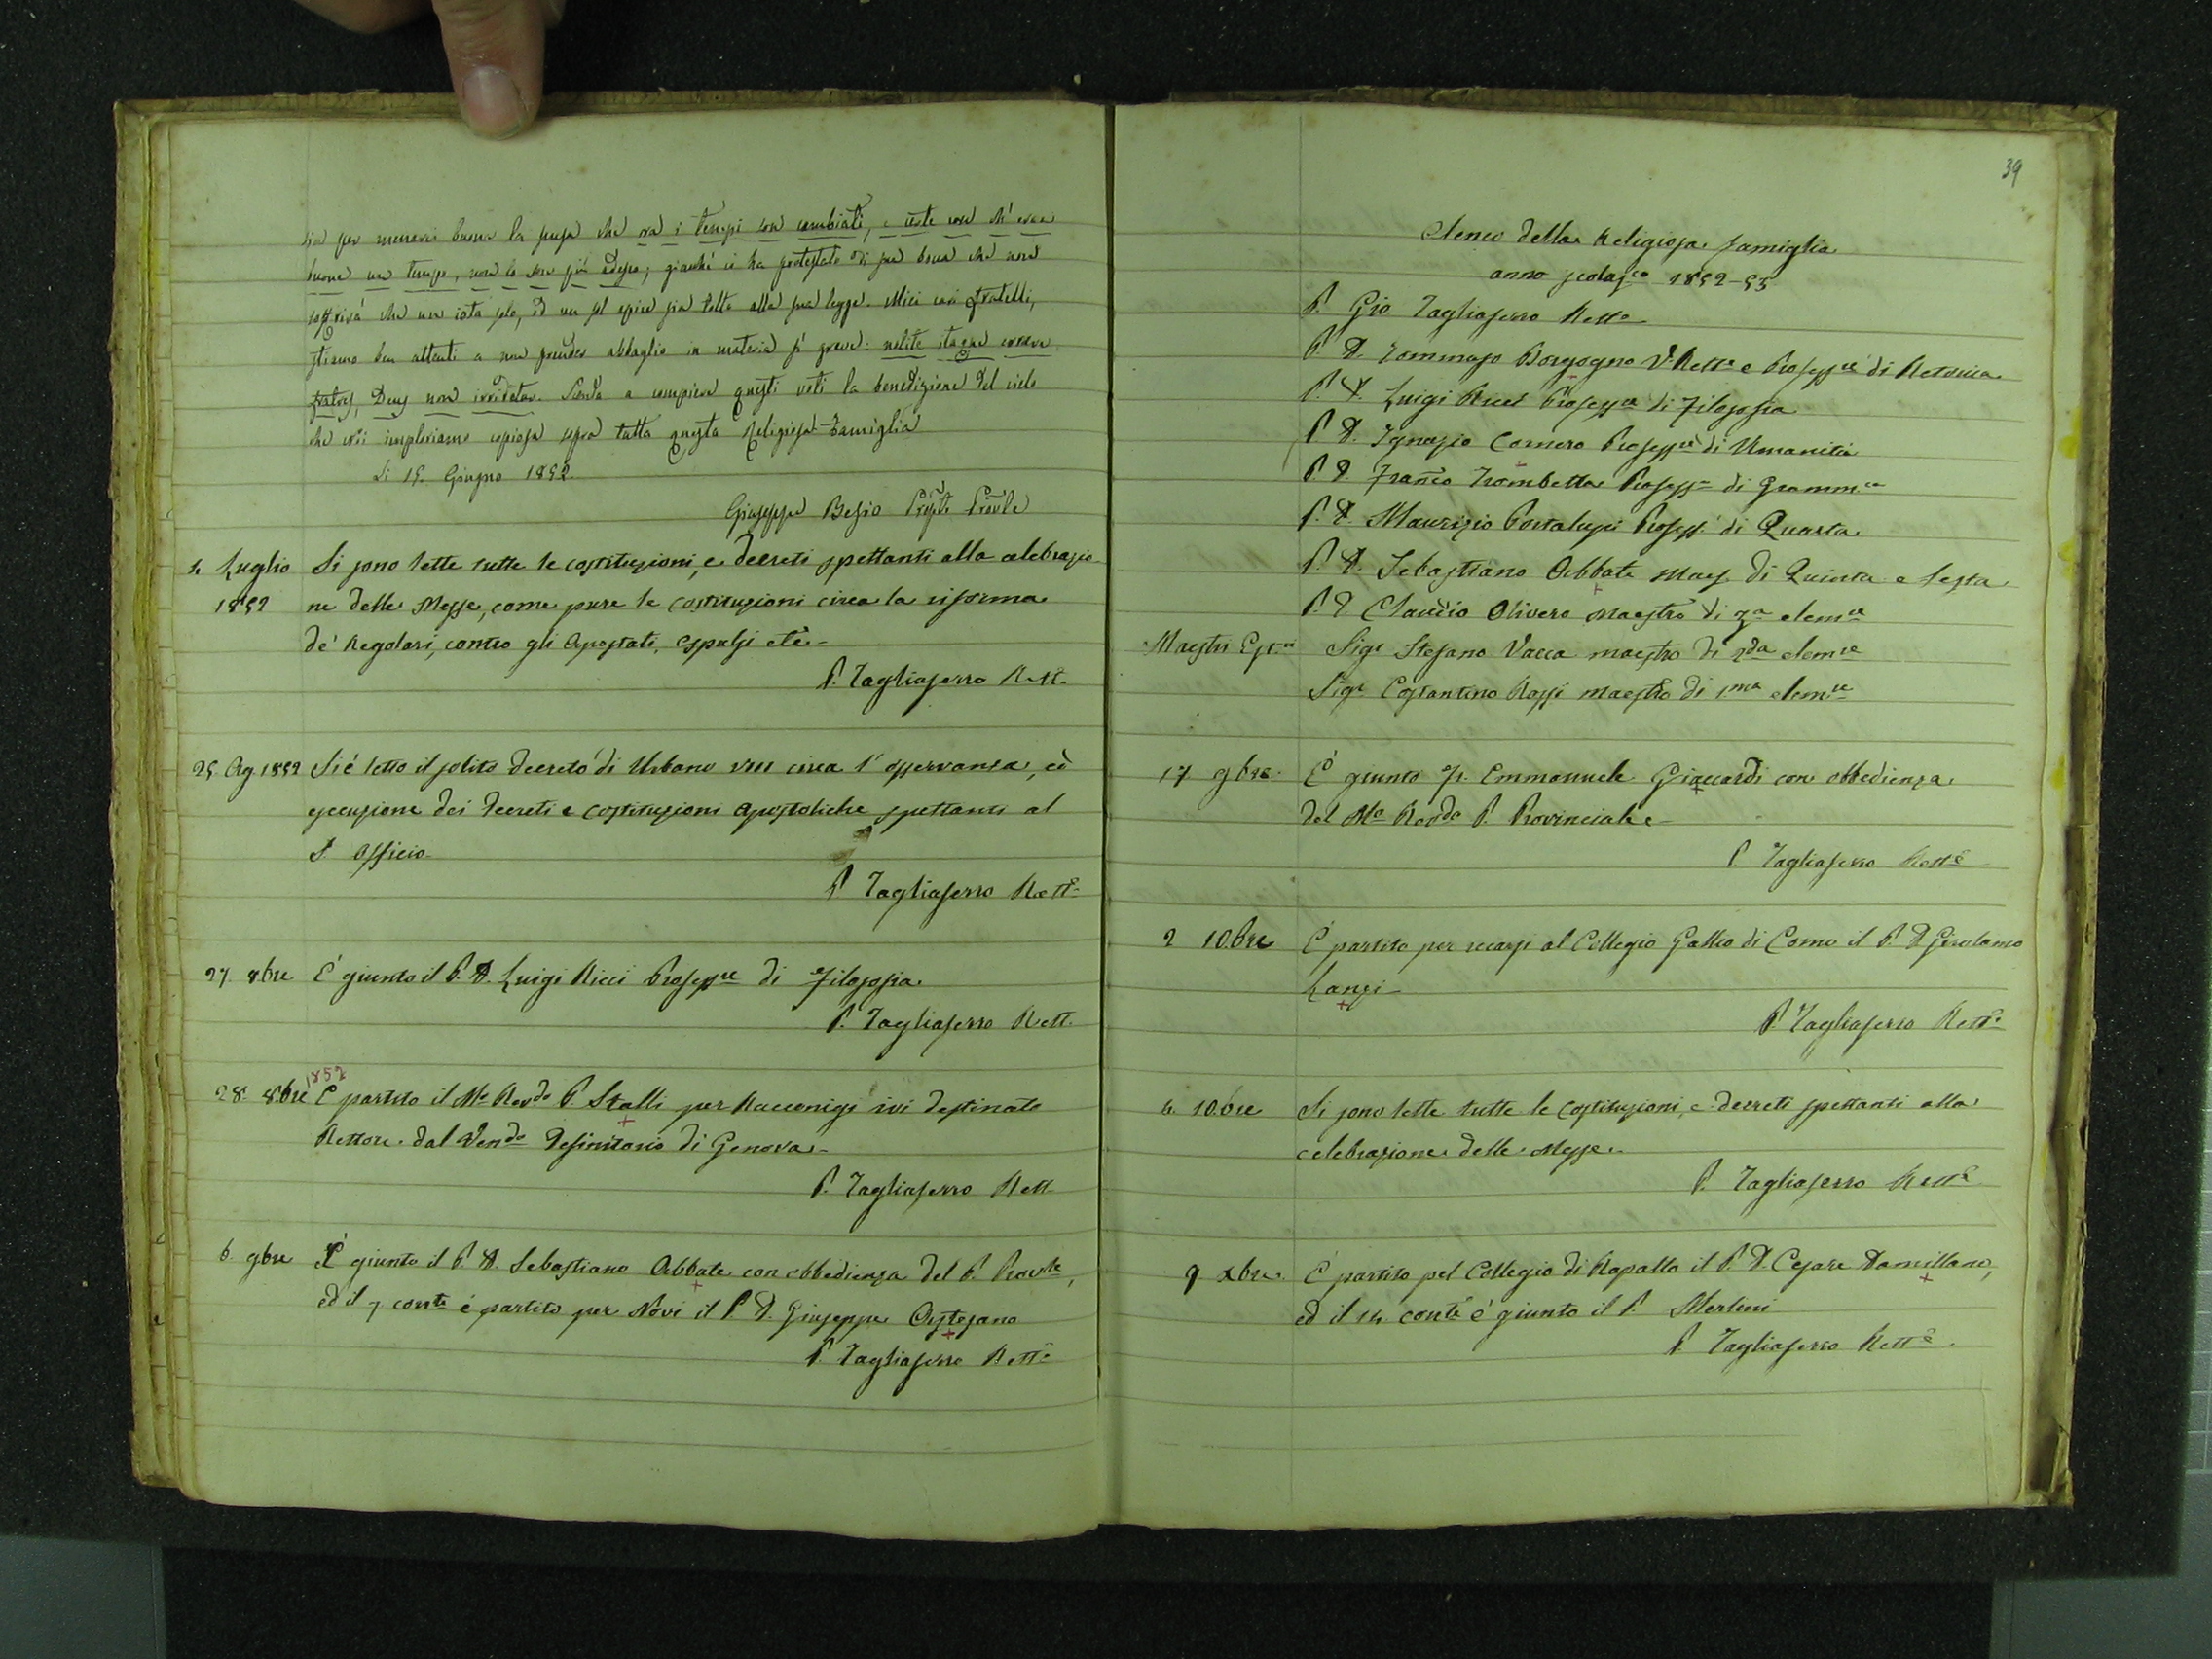 sia per menarvi buona la scusa che ora i tempi son cambiati, e certe cose ch'eran
buone un tempo, non lo son più adesso; giacchè ci ha protestato di sua bocca che non
soffrirà che un iota solo, od un sol apice sia tolto alla sua legge. Miei cari fratelli,
stiamo ben attenti a non prender abbaglio in materia sì grave: nolite itaque errare
fratres, Deus non irridetur. Scenda a compiere questi voti la benedizione del cielo
che noi imploriamo copiosa sopra tutta questa Religiosa Famiglia
Li 15. Giugno 1852.
Giuseppe Besio Prepto Provle
4 Luglio Si sono lette tutte le costituzioni, e decreti spettanti alla celebrazio-
1852 ne delle Messe, come pure le costituzioni circa la riforma
de' Regolari, contro gli Apostati, espulsi etc -
P. Tagliaferro Rett.
25. Ag. 1852 Si è letto il solito decreto di Urbano VIII circa l'osservanza, ed
esecuzione dei decreti e costituzioni Apostoliche spettanti al
S. Officio -
P. Tagliaferro Rett.
27. 8bre E' giunto il P. D. Luigi Ricci Professre di Filosofia.
P. Tagliaferro Rett.
1852
28. 8bre E' partito il Mo Revdo P. Stalli per Racconigi ivi destinato
Rettore dal Vendo Definitorio di Genova -
P. Tagliaferro Rett.
6. 9bre E' giunto il P. D. Sebastiano Abbate con obbedienza del P. Provle,
ed il 7 corrte è partito per Novi il P. D. Giuseppe
P. Tagliaferro Rette
39
Elenco della Religiosa famiglia
anno scolasco 1852-53
P. Gio Tagliaferro Rette
P. D. Tommaso Borgogno V. Rette e Professre di Retorica
P. D. Luigi Ricci Professre di Filosofia
P. D. Ignazio Cornero Professre di Umanità
P. D. Franco Trombetta Professe di Gramm.ca
P. D. Maurizio Portalupi Profess. di Quarta
P. D. Sebastiano Abbate Maes. di Quinta e Sesta
P. D. Claudio Olivero Maestro di 3a elemre
Maestri Est.ni Sigr Stefano Vacca maestro di 2da elemre
Sigr Costantino Rossi maestro di 1ma elemre
17. 9bre. E' giunto fr. Emmanuele Giaccardi con obbedienza
del Mo Revdo P. Provinciale -
P. Tagliaferro Rette
2 10.bre E' partito per recarsi al Collegio Gallio di Como il P. D. Girolamo
Lanzi -
P. Tagliaferro Rette
6. 10bre Si sono lette tutte le costituzioni, e decreti spettanti alla
celebrazione delle Messe -
P. Tagliaferro Rette
9 xbre. E' partito pel Collegio di Rapallo il P. D. Cesare Damillano,
ed il 14. corrte è giunto il P. Merlini
P. Tagliaferro Rette.